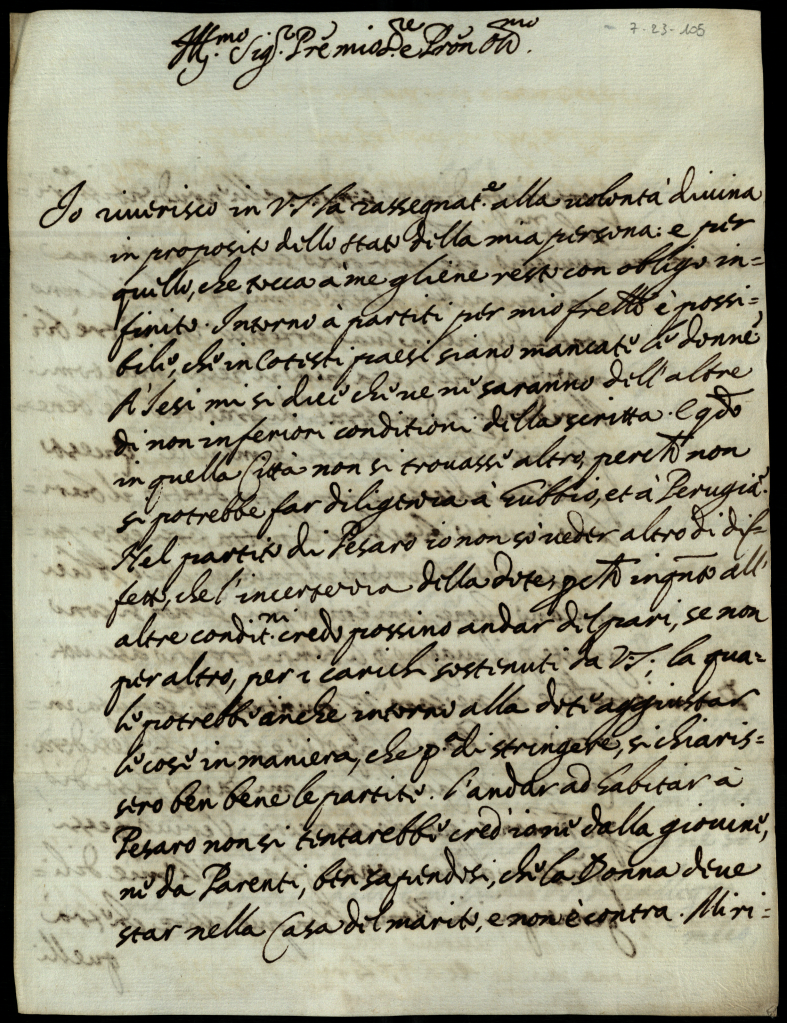 7-23-105
Ill.mo Sig.r Pre mio S.re e Pron Oss.mo
Io riverisco in V.S. la rassegnat.e alla volontà divina
in proposito dello stato della mia persona: e per
quello, che tocca à me gliene resto con obligo in=
finito. Intorno à partiti per mio frello è possi=
bile, che in cotesti paesi siano mancate le donne,
A' Iesi mi si dice che ve ne saranno dell'altre
di non inferiori conditioni della scritta. e qdo
in quella Città non si trovasse altro, perch non
si potrebbe far diligenza à Gubbio, et à Perugia.
Nel partito di Pesaro io non so veder altro di dif=
fetto, che l'incertezza della dote; pch in qnto all'
altre condit.ni credo possino andar del pari, se non
per altro, per i carichi sostenuti da V.S.; la qua=
le potrebbe anche intorno alla dote aggiustar
le cose in maniera, che p.a di stringere, si chiaris=
sero ben bene le partite. L'andar ad habitar à
Pesaro non si tentarebbe cred'io nè dalla giovine,
nè da Parenti, ben sapendosi, che la Donna deve
star nella Casa del marito, e non è contra. Mi ri=